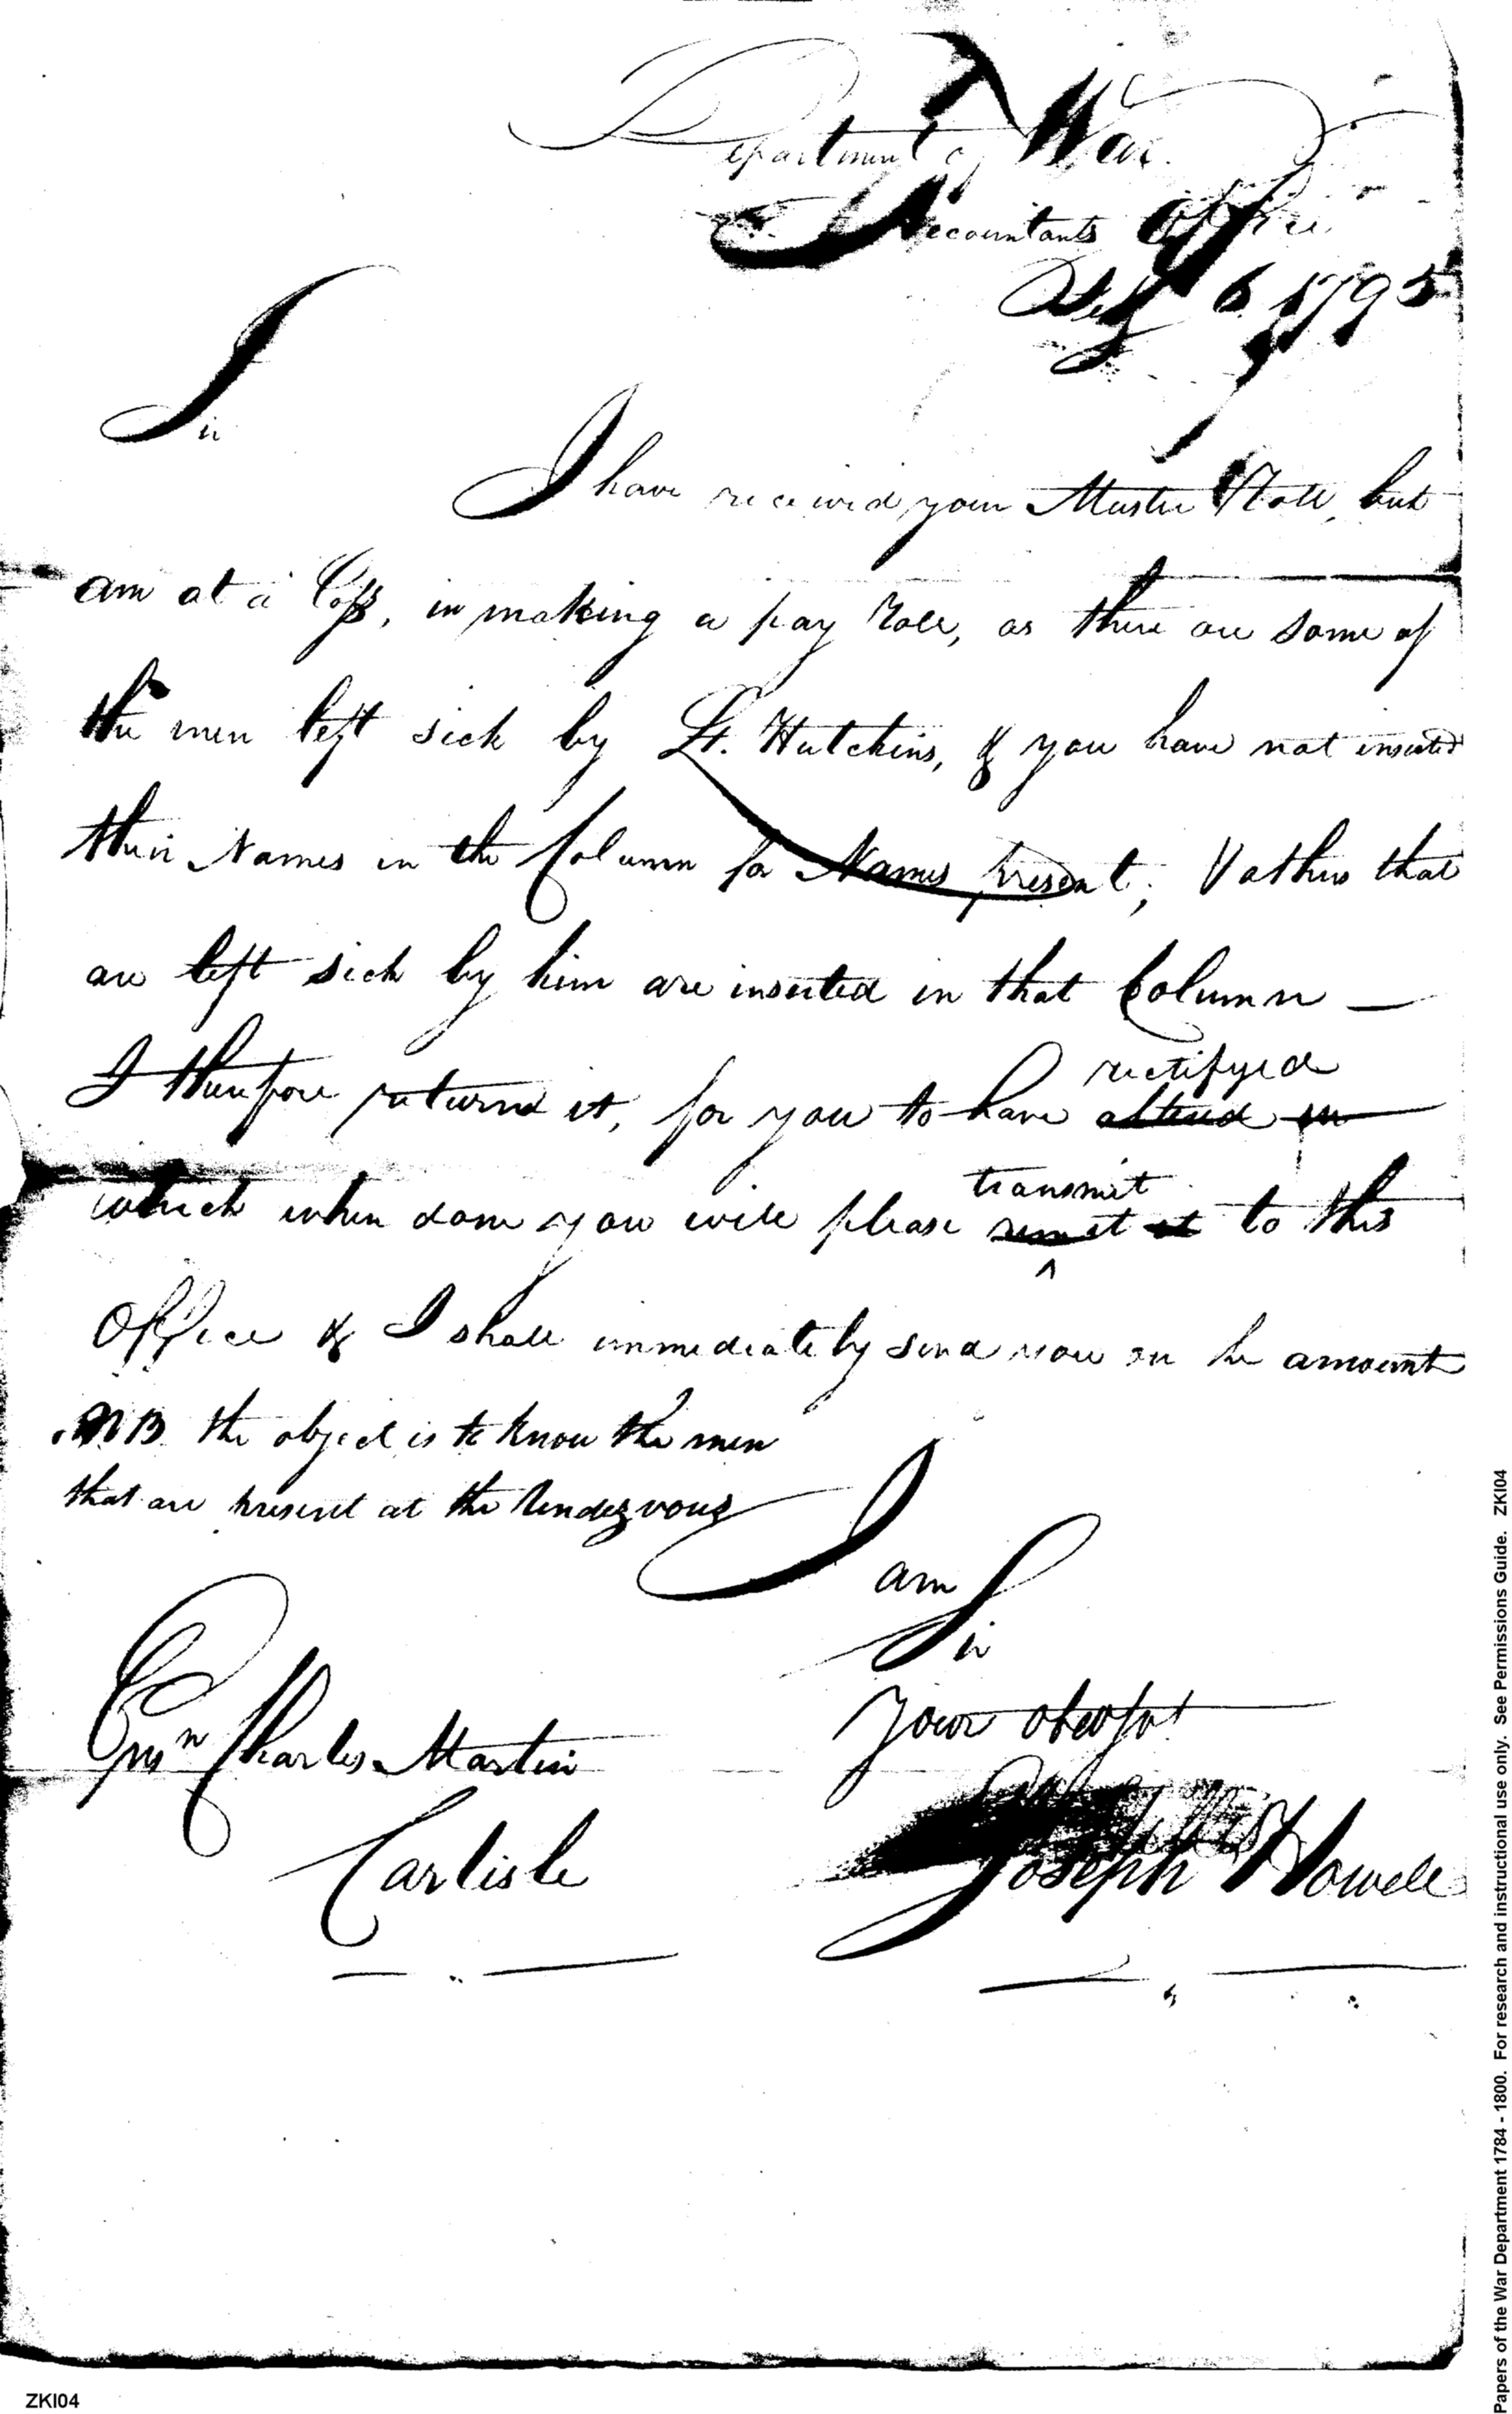 Department of War
Accountants Office
6 1795
Sir
I have received your Muster Roll, but
am at a Loss, in making a pay Roll, as there are some of
the men left sick by Lt. Hutchins, & you have not inserted
their Names in the Column for Names present; & others that
are left sick by him are inserted in that Column —
rectifyed
I therefore returnd it, for you to have altered in
transmit
which when done you will please remit it to this
Office & I shall immediately send you on the amount
NB the object is to know the men
that are present at the Rendezvous
I am
Sir
your obedt st
Ensn Charles Martin
Carlisle
Joseph Howell
Papers of the War Department 1784 - 1800. For research and instructional use only. See Permissions Guide. ZKI04
ZKI04